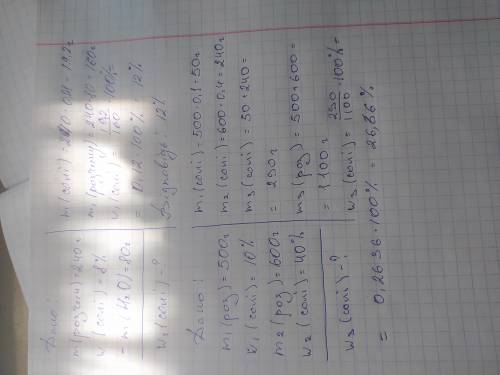 Дано:
m(розчин)=240г
w(солі)=8%
-m(H₂O)=80г
w₁(солі)-?
m(солі)=240·0,08=19,2г
m₁(розчину)=240-80=160г
w₁(солі)=19,2/160·100%=
=0,12·100%=12%
Відповідь: 12%
Дано:
m₁(роз)=500г
w₁(солі)=10%
m₂(роз)=600г
w₂(солі)=40%
w₃(солі)-?
m₁(солі)=500·0,1=50г
m₂(солі)=600·0,4=240г
m₃(солі)=50+240=
=290г
m₃(роз)=500+600=
=1100г
w₃(солі)=290/1100·100%=
=0,2636·100%=26,36%